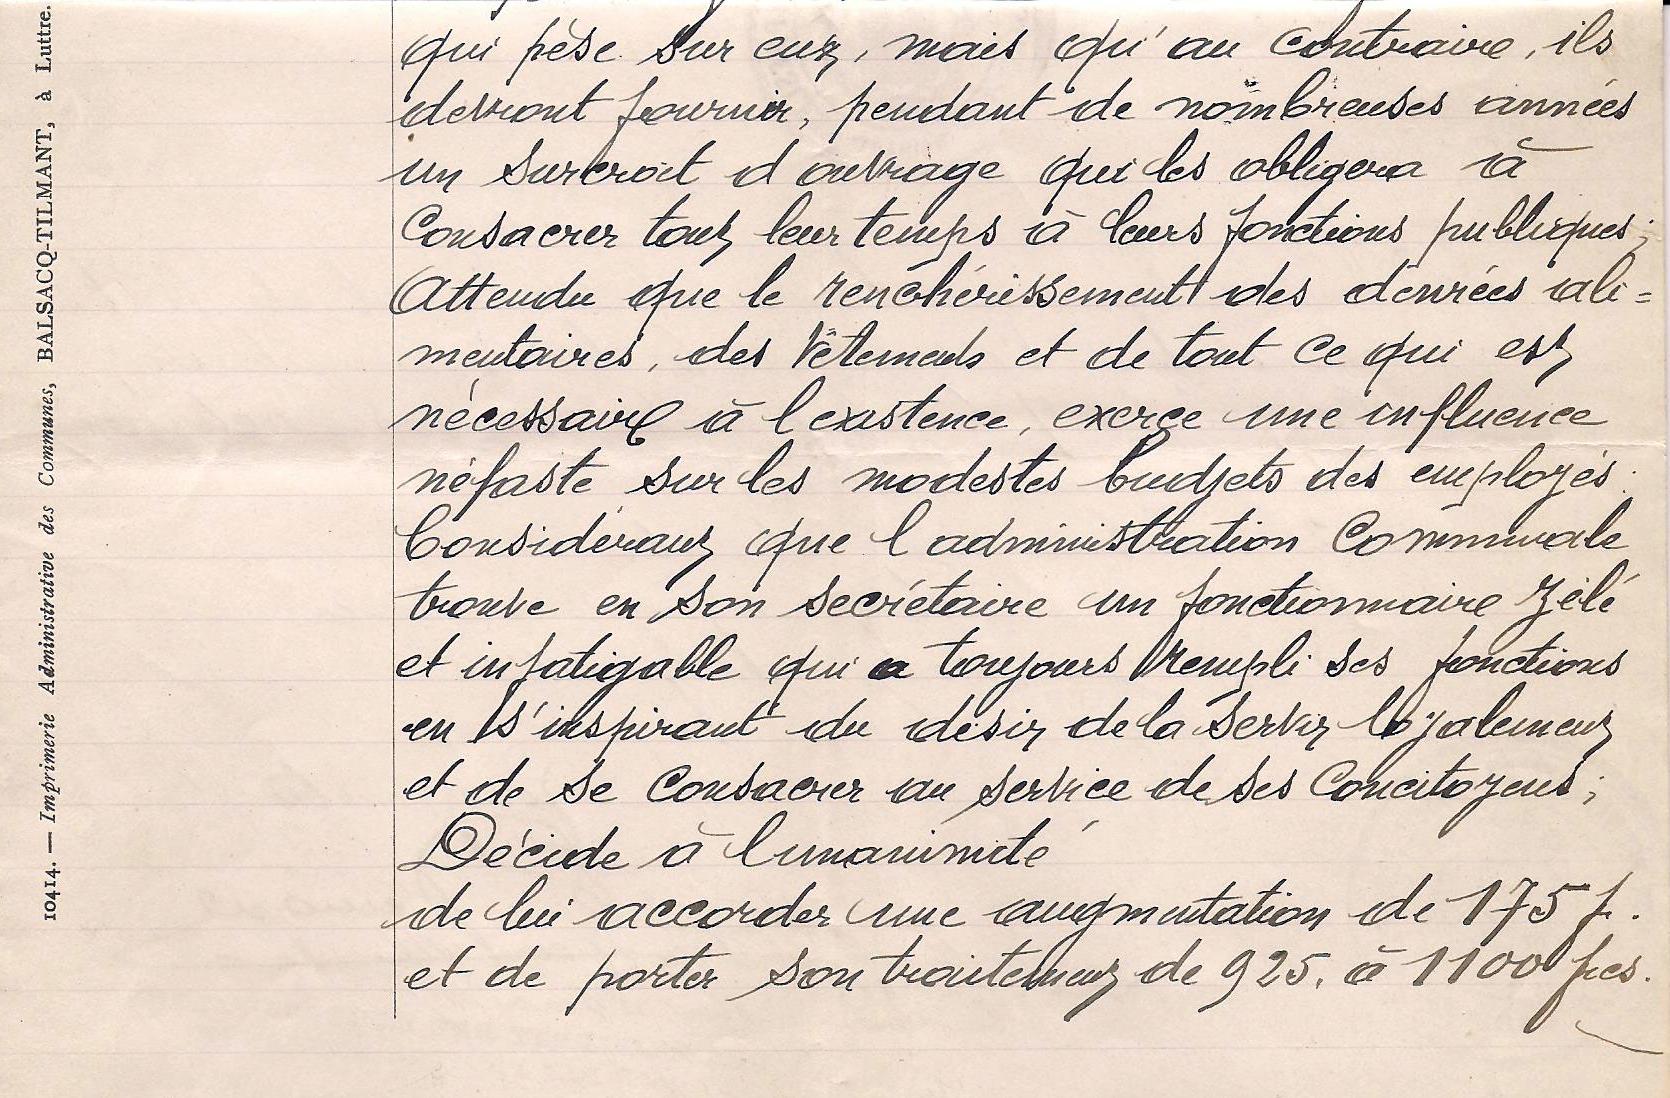 10414. — Imprimerie Administrative des Communes, BALSACQ-TILMANT, à Luttre.
qui pèse sur eux, mais qu'au contraire, ils
devront fournir, pendant de nombreuses années
un surcroit d'ouvrage qui les obligera à
consacrer tout leur temps à leurs fonctions publiques;
Attendu que le renchérissement des denrées ali=
mentaires, des vêtements et de tout ce qui est
nécessaire à l'existence, exerce une influence
néfaste sur les modestes budgets des employés.
Considérant que l'administration Communale
trouve en son secrétaire un fonctionnaire zélé
et infatigable qui a toujours rempli ses fonctions
en s'inspirant du désir de la servir loyalement
et de se consacrer au service de ses concitoyens;
Décide à l'unanimité
de lui accorder une augmentation de 175 f.
et de porter son traitement de 925. à 1100 frcs.